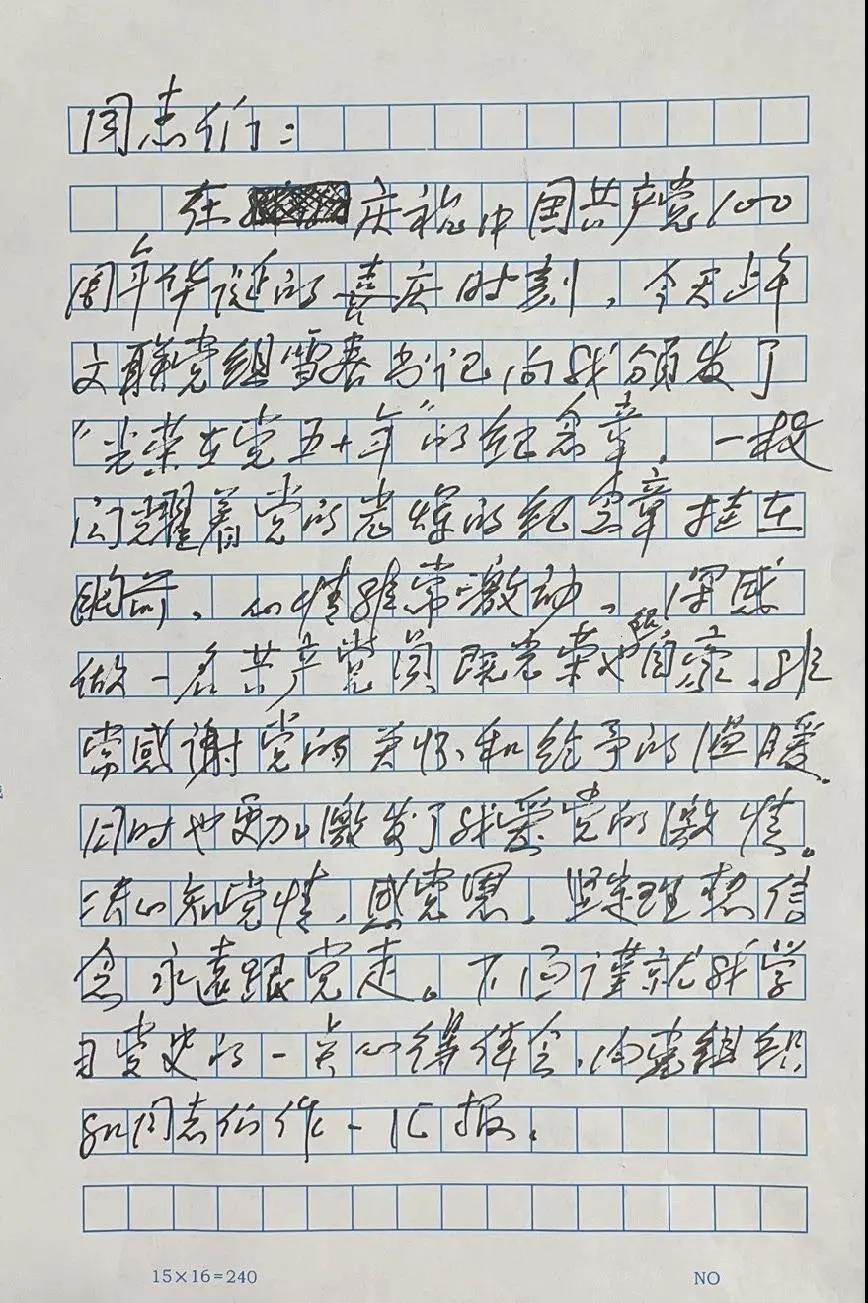 同志们：
在庆祝中国共产党100
周年华诞的喜庆时刻，今天上午
文联党组雪春书记向我颁发了
“光荣在党五十年”的纪念章，一枚
闪耀着党的光辉的纪念章挂在
胸前，心情非常激动，深感
做一名共产党员既光荣也自豪，非
常感谢党的关怀和给予的温暖。
同时也更加激发了我爱党的激情。
决心知党情，感党恩，坚定理想信
念永远跟党走。下面谨就我学
习党史的一点心得体会，向党组织
和同志们作一汇报。
15×16=240 NO